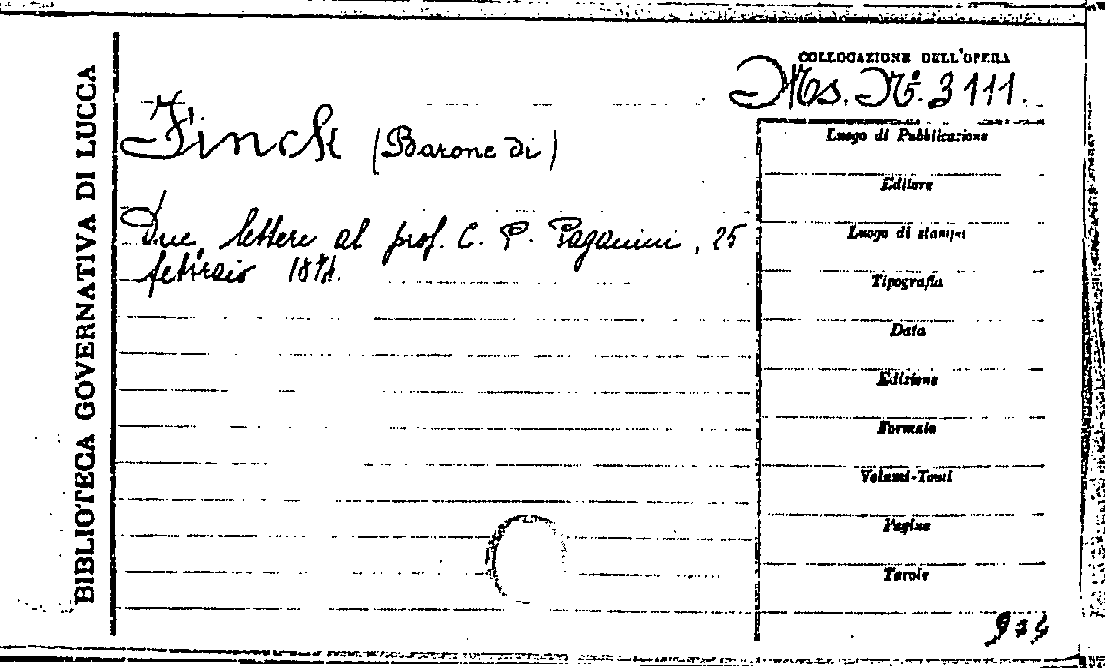 BIBLIOTECA GOVERNATIVA DI LUCCA
COLLOCAZIONE DELL'OPERA
Ms. N.º 3111.
Finck (Barone di)
Due lettere al prof. C. P. Paganini, 25
febbraio
Luogo di Pubblicazione
Editore
Luogo di stampa
Tipografia
Data
Edizione
Formato
Volumi-Tomi
Pagine
Tavole